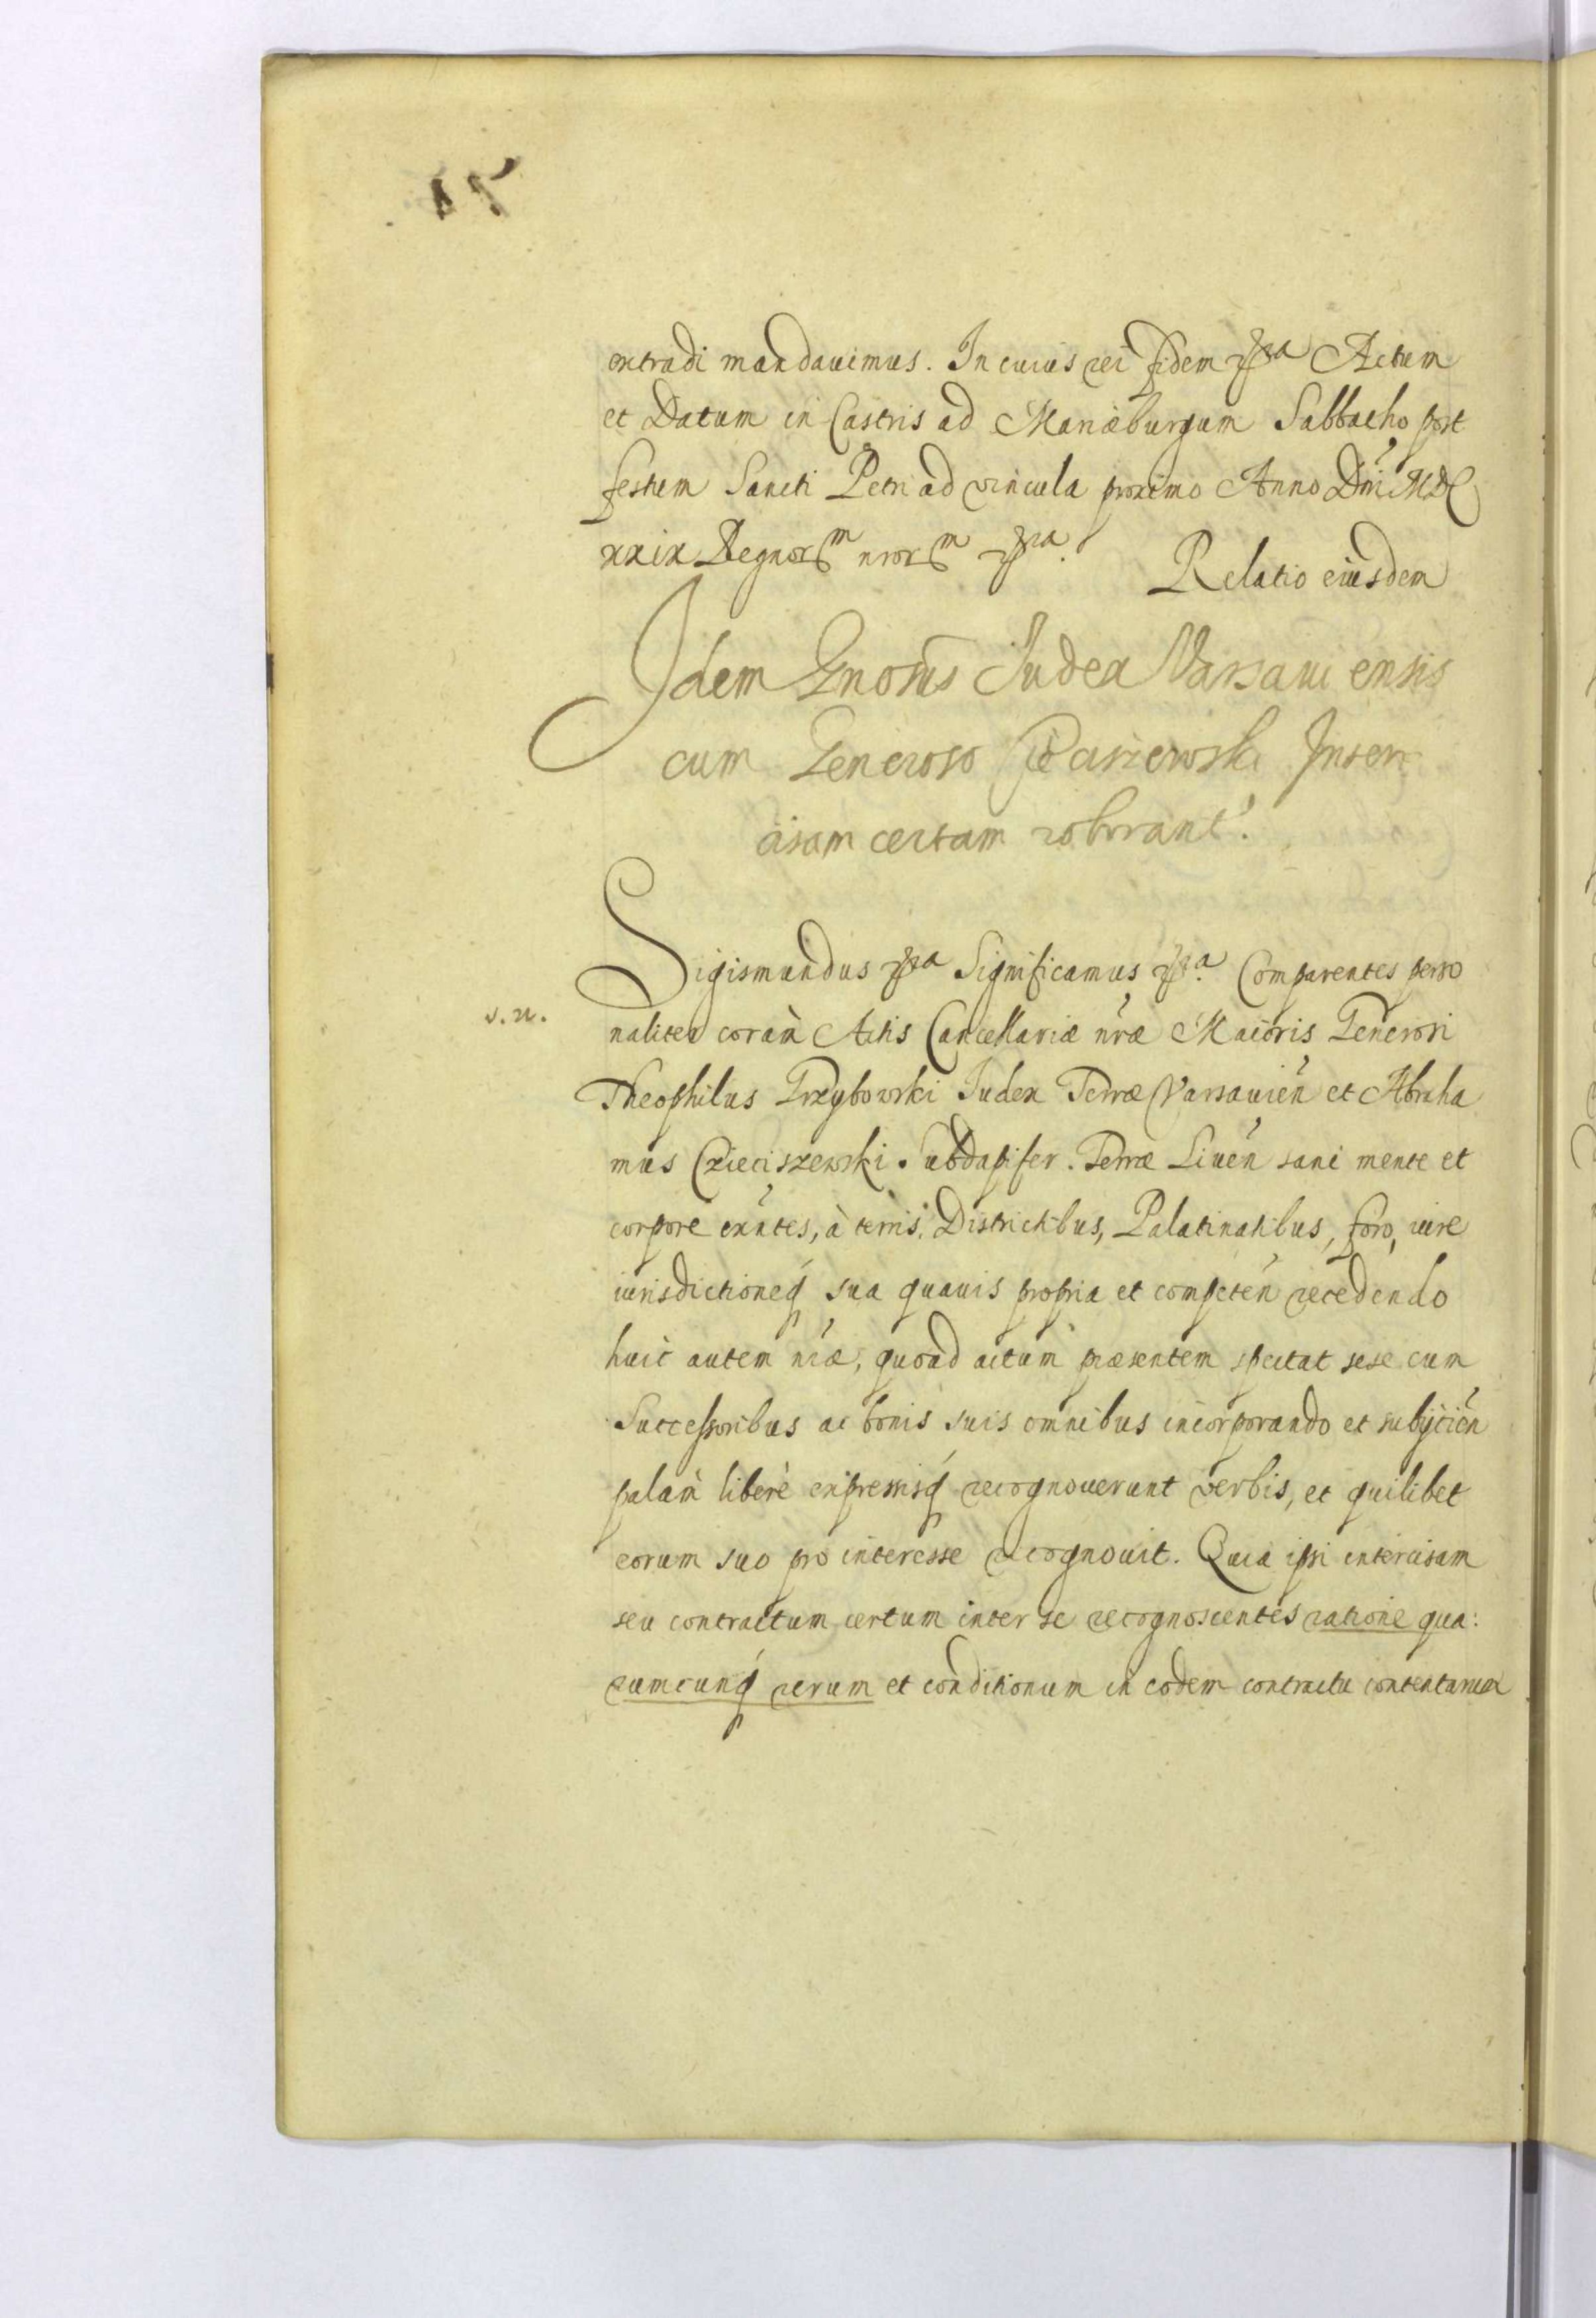 extradi mandauimus. In cuius rei fidem etca Actum
et Datum in Castris ad Mariæburgum Sabbatho post
festum Sancti Petri ad vincula proximo Anno Dni MDC
xxix Regnorm nrorm etca.
Relatio eiusdem
Idem Gnosus Iudex Varsauiensis
cum Generoso Interci
cisam certam roborant.
Sigismundus etca Significamus etca. Comparentes perso
v.n.
naliter coràm Actis Cancellariæ nræ Maioris Generosi
Theophilus Grzybowski Iudex Terræ Varsauien et Abraha
mus Czieciszewski Subdapifer Terræ Liuen sani mente et
corpore exntes, à terris, Districtibus, Palatinatibus, foro, iure
iurisdictioneq sua quauis propria et competen recedendo
huic autem nræ, quoad actum præsentem spectat sese cum
Successoribus ac bonis suis omnibus incorporando et subijcien
palàm liberè expressisq recognouerunt verbis, et quilibet
eorum suo pro interesse recognouit. Quia ipsi intercisam
seu contractum certum inter se recognoscentes ratione qua:
rumcunq rerum et conditionum in eodem contractu contentarum